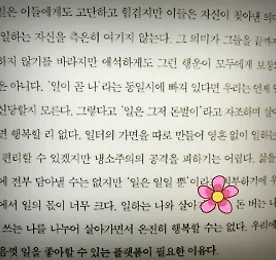 일은 이들에게도 고단하고 힘겹지만 이들은 자신이 찾아낸 의미
일하는 자신을 측은히 여기지 않는다. 그 의미가 그들을 끝까지
하지 않기를 바라지만 애석하게도 그런 행운이 모두에게 보장
은 아니다. '일이 곧 나'라는 동일시에 빠져 있다면 우리는 언제
신당할지 모른다. 그렇다고 '일은 그저 돈벌이'라고 자조하며 살아
면 행복할 리 없다. 일터의 가면을 따로 만들어 영혼 없이 일하는
편리할 수 있겠지만 냉소주의의 공격을 피하기는 어렵다. 삶을
에 전부 담아낼 수는 없지만 '일은 일일 뿐'이라 치부하기에 우
에서 일의 몫이 너무 크다. 일하는 나와 살아 돈 버는 나
쓰는 나를 나누어 살아가면서 온전히 행복할 수는 없다. 우리에
음껏 일을 좋아할 수 있는 플랫폼이 필요한 이유다.